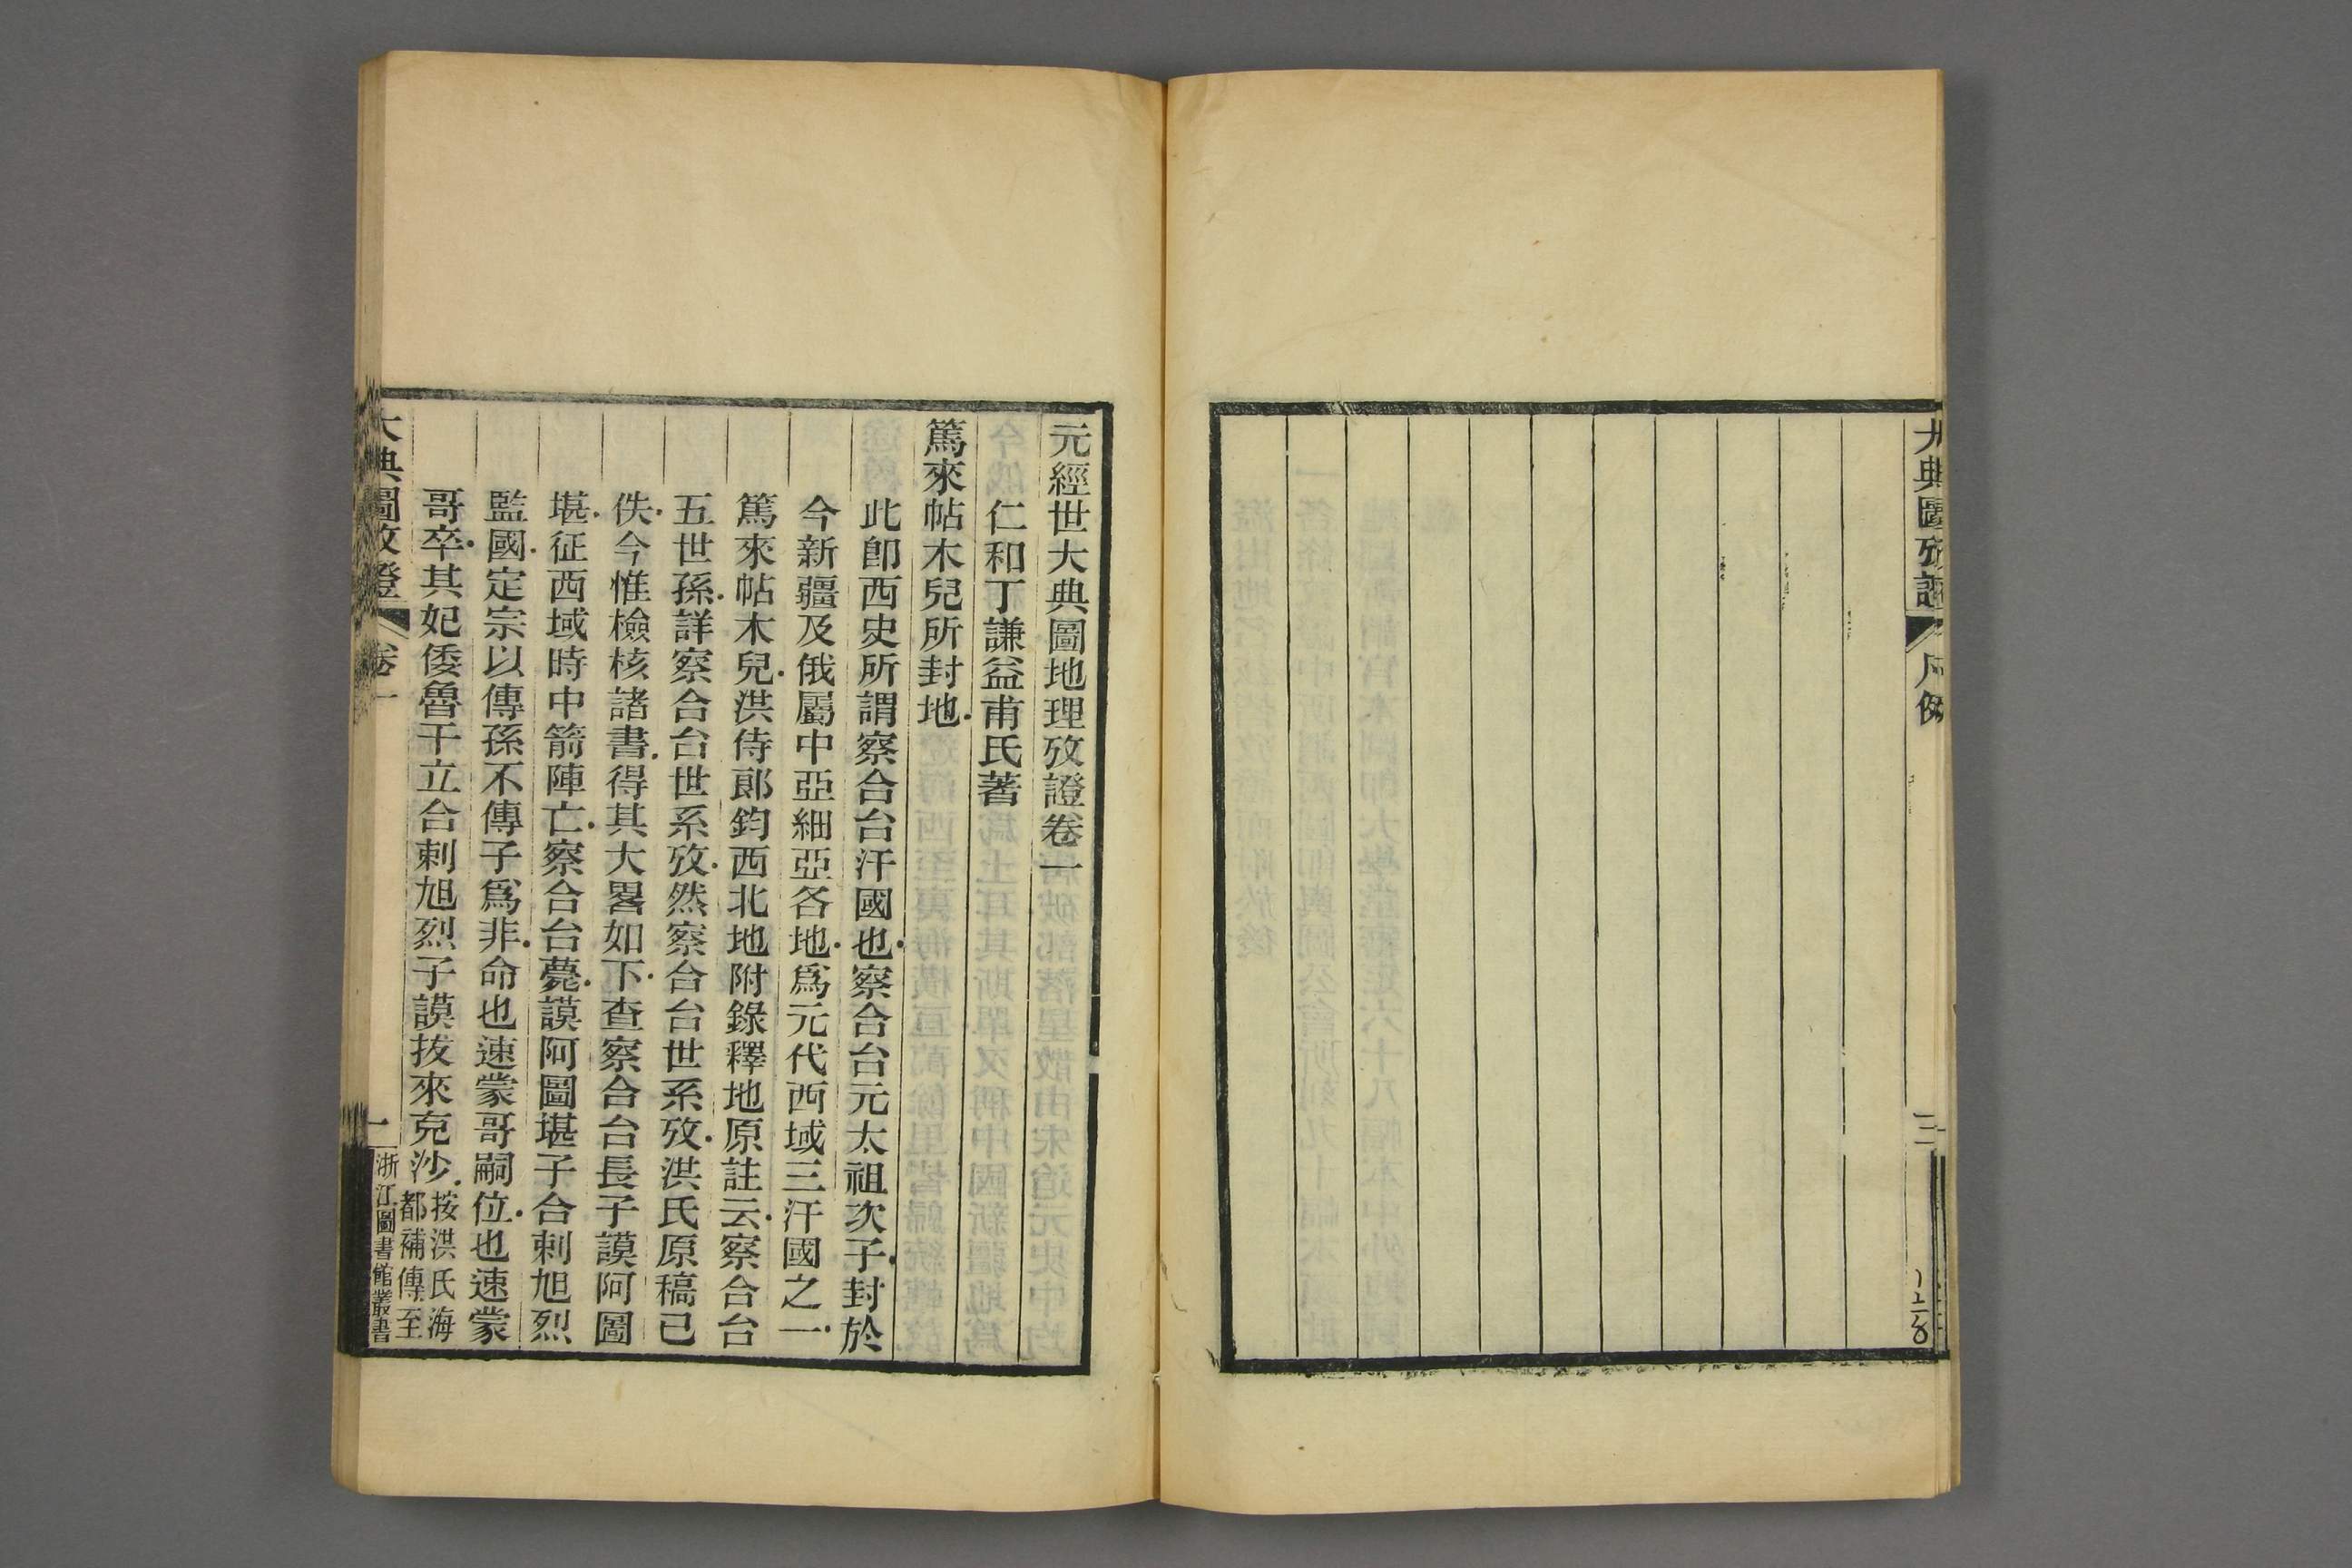 大典圖攷證
凡例
三
元經世大典圖地理攷證卷一
仁和丁謙益甫氏著
篤來帖木兒所封地
此卽西史所謂察合台汗國也察合台元太祖次子封於
今新疆及俄屬中亞細亞各地爲元代西域三汗國之一
篤來帖木兒洪侍郞鈞西北地附錄釋地原註云察合台
五世孫詳察合台世系攷然察合台世系攷洪氏原稿已
佚今惟檢核諸書得其大畧如下查察合台長子謨阿圖
堪征西域時中箭陣亡察合台薨謨阿圖堪子合剌旭烈
監國定宗以傳孫不傳子爲非命也速蒙哥嗣位也速蒙
哥卒其妃倭魯干立合剌旭烈子謨拔來克沙按洪氏海
都補傳至
大典圖攷證
卷一
一
浙江圖書館叢書